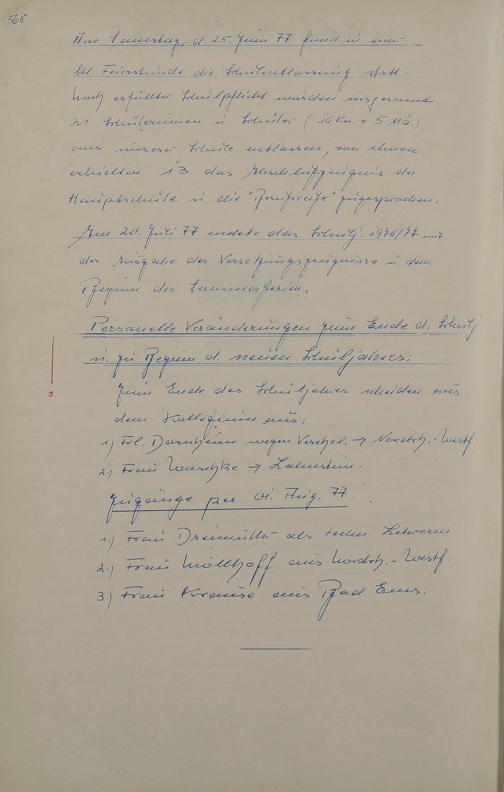 568
Am Samstag, d. 25. Juni 77 fand in einer
Feierstunde die Schulentlassung statt.
Nach erfüllter Schulpflicht wurden insgesamt
21 Schülerinnen u. Schüler (16 Kn. + 5 Mä.)
aus unserer Schule entlassen, von ihnen
erhielten 13 das Abschlußzeugnis der
Hauptschule u. die "Berufsreife" zugesprochen.
Am 20. Juli 77 endete das Schulj. 1976/77 mit
der Ausgabe der Versetzungszeugnisse u. dem
Beginn der Sommerferien.
Personelle Veränderungen zum Ende d. Schulj.
u. zu Beginn d. neuen Schuljahres:
Zum Ende des Schuljahres scheiden aus
dem Kollegium aus:
1.) Frl. wegen Verehel. → Nordrh.-Westf
2.) Frau Waschke → Lahnstein.
Zugänge per 01. Aug. 77
1.) Frau Dreimüller als techn. Lehrerin
2.) Frau Mölthoff aus Nordrh.-Westf.
3) Frau Krause aus Bad Ems.